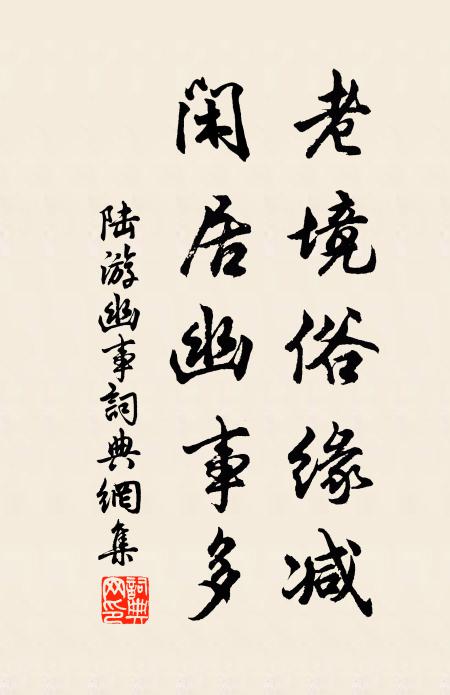 老境俗缘减
闲居幽事多
陆游幽事詞典網集
詞典网印